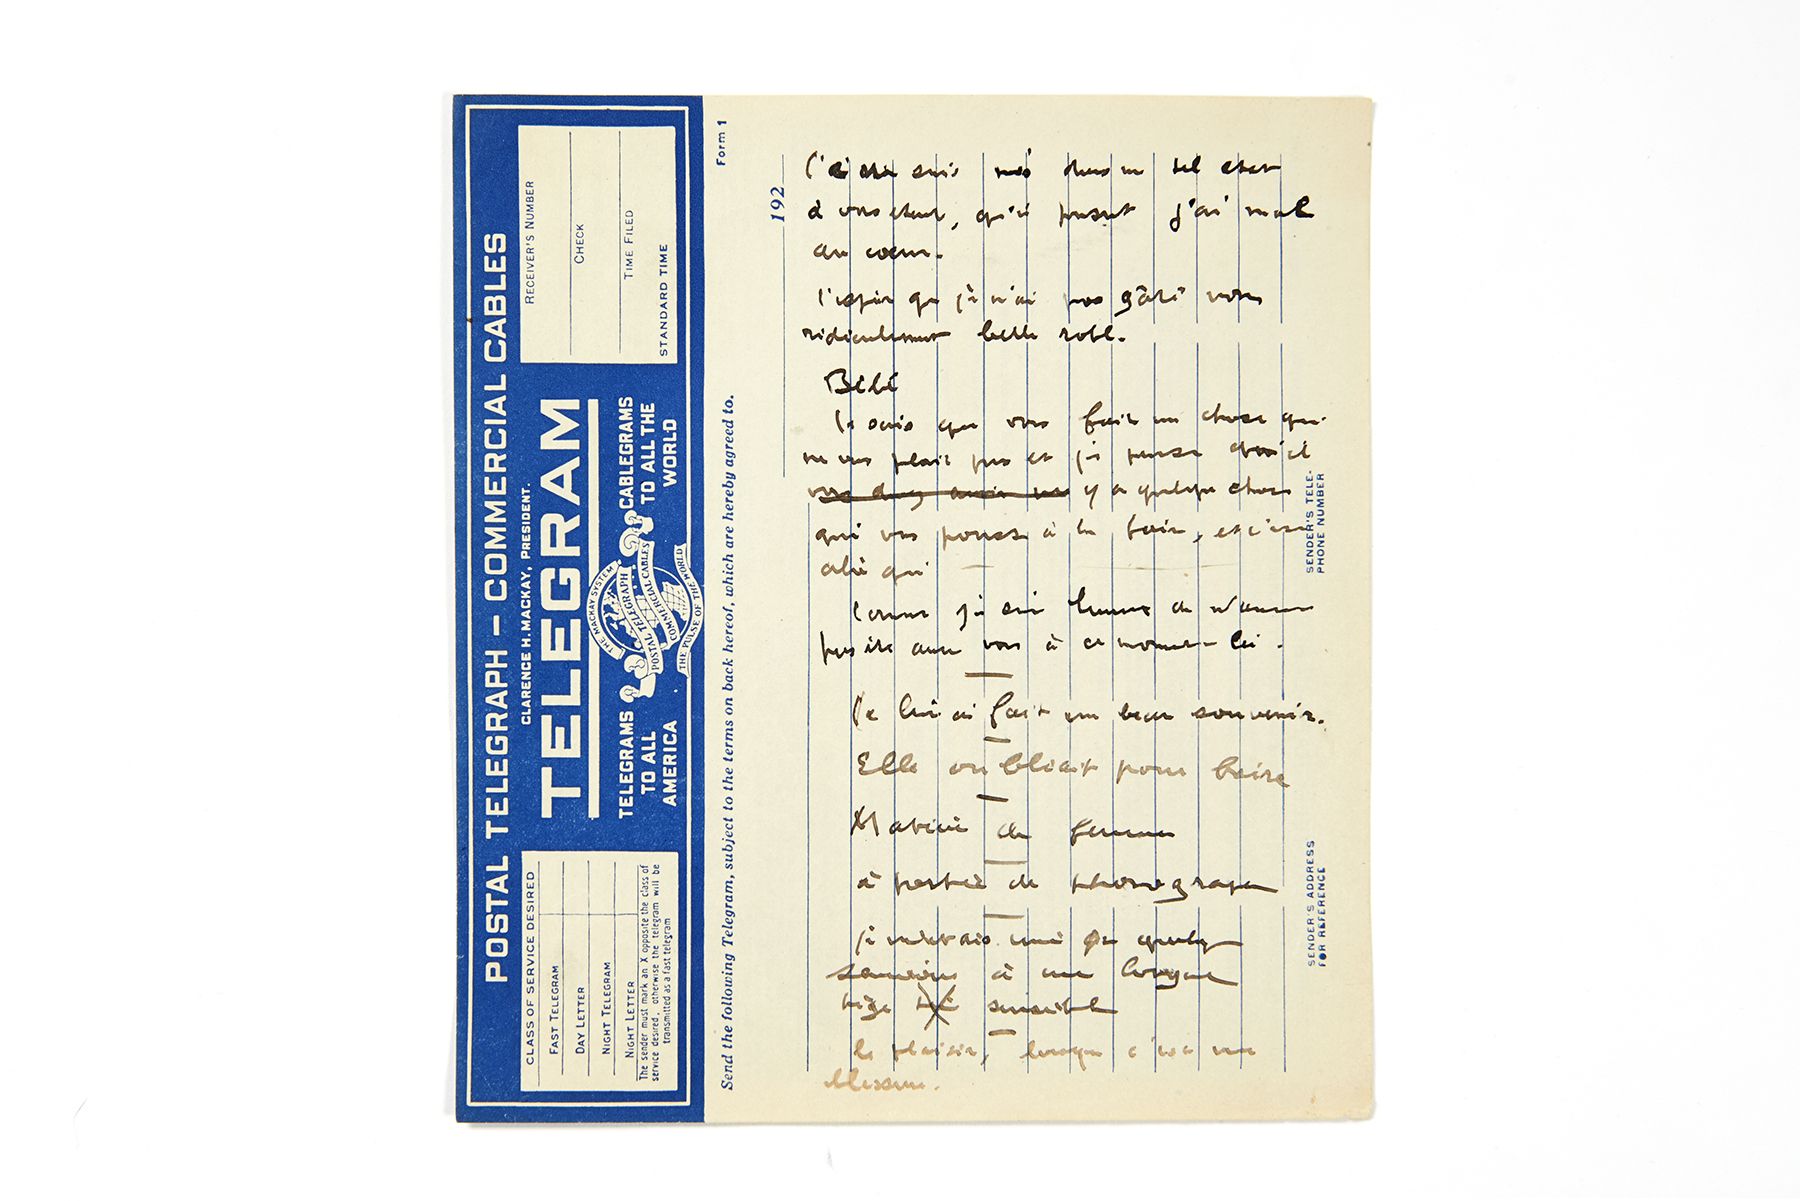 POSTAL TELEGRAPH – COMMERCIAL CABLES
CLARENCE H. MACKAY, PRESIDENT.
RECEIVER'S NUMBER
CHECK
TIME FILED
STANDARD TIME
TELEGRAM
TELEGRAMS
TO ALL
AMERICA
THE MACKAY SYSTEM
POSTAL TELEGRAPH
COMMERCIAL CABLES
THE PULSE OF THE WORLD
CABLEGRAMS
TO ALL THE
WORLD
CLASS OF SERVICE DESIRED
FAST TELEGRAM
DAY LETTER
NIGHT TELEGRAM
NIGHT LETTER
The sender must mark an X opposite the class of
service desired, otherwise the telegram will be
transmitted as a fast telegram
Send the following Telegram, subject to the terms on back hereof, which are hereby agreed to.
Form 1
192
SENDER'S TELE-
PHONE NUMBER
SENDER'S ADDRESS
FOR REFERENCE
suis mis dans un tel etat
à j'ai mal
au coeur.
J'espère que je n'ai pas gâté votre
ridiculement belle robe.
Bébé
Je sais que vous faite un chose qui
ne vous plait pas et je pense
y a quelque chose
qui vous pousse à la faire, et c'est
cela qui
je suis de
pas être avec vous à ce moment-ci.
Je lui ai fait un beau souvenir.
Elle oubliait pour boire
de femme
à portée de phonographe
je de quelques
semaines à une longue
tige sensible
le plaisir, lorsque c'est une
blessure.